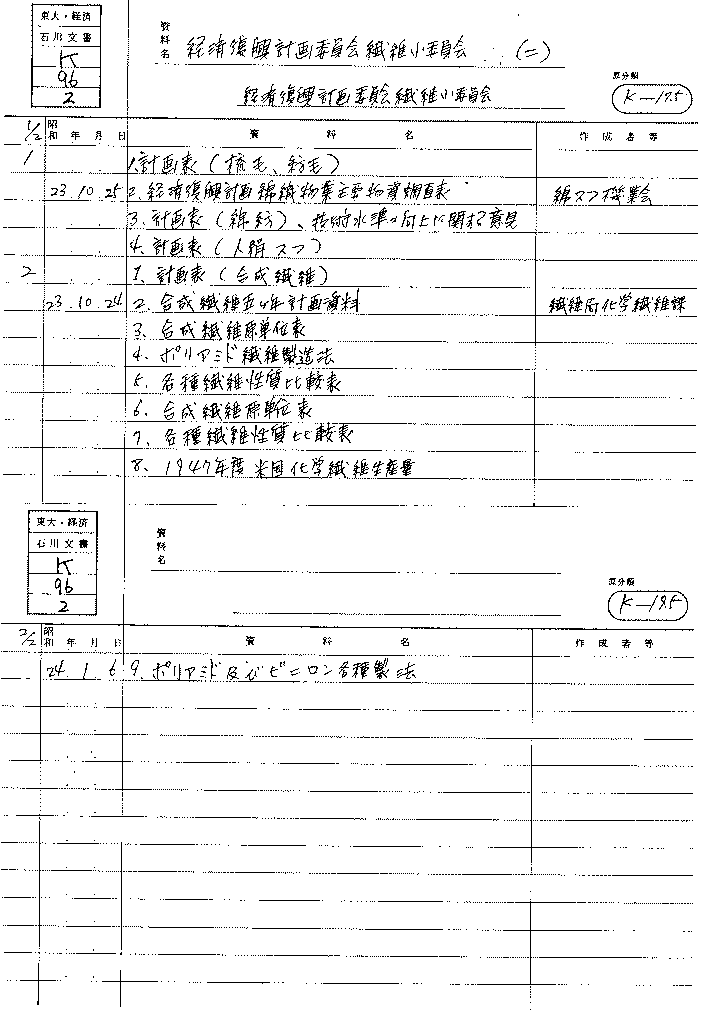 東大・経済
石川文書
K
96
2
資料名 経済復興計画委員会繊維小委員会 (二)
経済復興計画委員会繊維小委員会
原分類
K-175
1/2 昭和 年 月 日 資料名 作成者等
1 1.計画表(梳毛、紡毛)
23.10.25 2.経済復興計画綿織物業主要物資調査表 綿スフ機業会
3.計画表(綿紡)、技術水準の向上に関する意見
4.計画表(人絹スフ)
2 1.計画表(合成繊維)
23.10.24 2.合成繊維五ヶ年計画資料 繊維局化学繊維課
3.合成繊維原単位表
4.ポリアミド繊維製造法
5.各種繊維性質比較表
6.合成繊維原単位表
7.各種繊維性質比較表
8.1947年度米国化学繊維生産量
東大・経済
石川文書
K
96
2
資料名
原分類
K-175
2/2 昭和 年 月 日 資料名 作成者等
24.1.6 9.ポリアミド及びビニロン各種製法